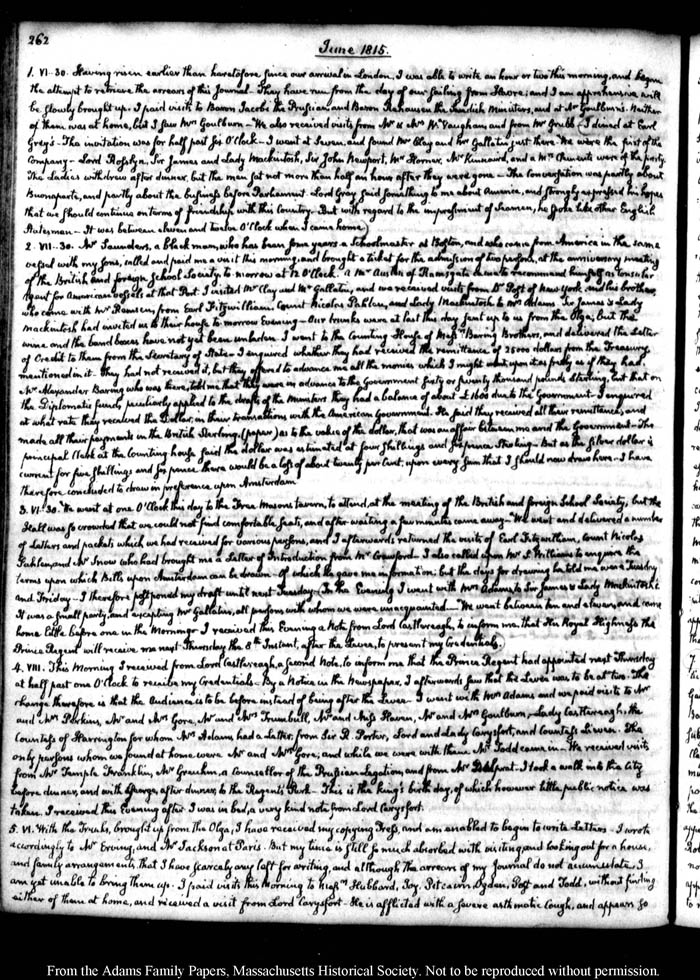 262
June 1815.
1. VI. 30. Having risen earlier than heretofore since our arrival in London, I was able to write an hour or two this morning, and began
the attempt to retrieve the arrears of this Journal. They have run from the day of our sailing from Havre; and I am apprehensive will
be slowly brought up. I paid visits to Baron Jacobi the Prussian, and Baron Rehausen the Swedish Ministers, and at Mr Goulburn's. Neither
of them was at home, but I saw Mrs Goulburn - We also received visits from Mr & Mrs Wm Vaughan and from Mr Grubb - I dined at Earl
Grey's - The invitation was for half past Six O'Clock - I went at Seven, and found Mr Clay and Mr Gallatin just there. We were the first of the
Company - Lord Rosslyn, Sir James and Lady Mackintosh, Sir John Newport, Mr Horner, Mr Kinnaird, and a Mr were of the party.
The Ladies withdrew after dinner, but the men sat not more than half an hour after they were gone - The conversation was partly about
Buonaparte, and partly about the business before Parliament. Lord Grey said something to me about America, and strongly expressed his hopes
that we should continue on terms of friendship with this Country. But with regard to the impressment of Seamen, he spoke like other English
Statesman - It was between eleven and twelve O'Clock when I came home)
2. VII. 30. Mr Saunders, a black man, who has been some years a Schoolmaster at Boston, and who came from America in the same
vessel with my sons, called and paid me a visit this morning, and brought a ticket for the admission of two persons, at the anniversary meeting
of the British and foreign School Society to morrow at 12 O'Clock. a Mr Austen of Ramsgate came to recommend himself as Consular
Agent for American Vessels at that Port. I visited Mr Clay and Mr Gallatin, and we received visits from Dr Post of New York, and his brother,
who came with Mr Remsen, from Earl Fitzwilliam, Count Nicolas Pahlen, and Lady Mackintosh to Mrs Adams. Sir James & Lady
Mackintosh had invited us to their house to morrow Evening - Our trunks were at last this day sent up to us from the Olga; but the
wine and the band boxes have not yet been unladen. I went to the Counting House of Messrs Baring Brothers, and delivered the Letter
of Credit to them from the Secretary of State - I enquired whether they had received the remittance of 25000 dollars from the Treasury,
mentioned in it. They had not received it, but they offered to advance me all the monies which I might want upon it as freely as if they had.
Mr Alexander Baring who was there, told me that they were in advance to the Government sixty or seventy thousand pounds Sterling, but that on
the Diplomatic fund, peculiarly applied to the drafts of the Ministers they had a balance of about £1600 due to the Government - I enquired
at what rate they received the Dollar, in their transactions with the American Government. He said they received all their remittances, and
made all their payments in the British Sterling (paper) as to the value of the dollar, that was an affair between me and the Government - The
principal Clerk at the Counting house said the dollar was estimated at four shillings and sixpence Sterling - But as the Silver dollar is
current for five shillings and six pence there would be a loss of about twenty per Cent. upon every sum that I should now draw here - I have
therefore concluded to draw in preference upon Amsterdam
3. VI. 30. We went at one O'Clock this day to the Free Masons tavern, to attend, at the meeting of the British and foreign School Society, but the
Hall was so crowded that we could not find comfortable seats, and after waiting a few minutes came away - We went and delivered a number
of Letters and packets which we had received for various persons, and I afterwards returned the visits of Earl Fitzwilliam, Count Nicolas
Pahlen, and Mr Snow who had brought me a Letter of Introduction from Mr Crawford - I also called upon Mr S. Williams to enquire the
terms upon which Bills upon Amsterdam can be drawn - Of which he gave me information: but the days for drawing he told me were Tuesday
and Friday - I therefore postponed my draft until next Tuesday - (In the Evening I went with Mrs Adams to Sir James & Lady Mackintosh's
It was a small party, and excepting Mr Gallatin, all persons with whom we were unacquainted - We went between ten and eleven, and came
home little before one in the Morning. I received this Evening a Note from Lord Castlereagh, to inform me, that His Royal Highness the
Prince Regent will receive me next Thursday the 8th Instant, after the Levee, to present my Credentials.)
4. VIII. This Morning I received from Lord Castlereagh, a second Note, to inform me that the Prince Regent had appointed next Thursday
at half past one O'Clock to receive my Credentials. By a Notice in the Newspaper, I afterwards saw that the Levee was to be at two. The
change therefore is that the Audience is to be before instead of being after the Levee - I went with Mrs Adams and we paid visits to Mr
and Mrs Perkins, Mr and Mrs Gore, Mr and Mrs Trumbull, Mr and Miss Haven, Mr and Mrs Goulburn, Lady Castlereagh, the
Countess of Harrington for whom Mrs Adams had a Letter, from Sir R. Porter, Lord and Lady Carysfort, and Countess Lieven. The
only persons whom we found at home were Mr and Mrs Gore, and while we were with them Mr Todd came in - We received visits
from Mr Temple Franklin, Mr Greuhm, a Counsellor of the Prussian Legation, and from Mr I took a walk into the City
before dinner, and with George, after dinner, to the Regent's Park - This is the King's birth day, of which however little public notice was
taken. I received this Evening after I was in bed, a very kind note from Lord Carysfort.
5. VI. With the Trunks, brought up from the Olga, I have received my copying Press, and am enabled to begin to write Letters - I wrote
accordingly to Mr Erving, and Mr Jackson at Paris - But my time is still so much absorbed with visiting, and looking out for a house,
and family arrangements, that I have scarcely any left for writing, and although the arrears of my Journal do not accumulate, I
am yet unable to bring them up - I paid visits this Morning to Messrs Hubbard, Joy, Pitcairn, Ogden, Post and Todd, without finding
either of them at home, and received a visit from Lord Carysfort - He is afflicted with a severe asthmatic Cough, and appears so
From the Adams Family Papers, Massachusetts Historical Society. Not to be reproduced without permission.